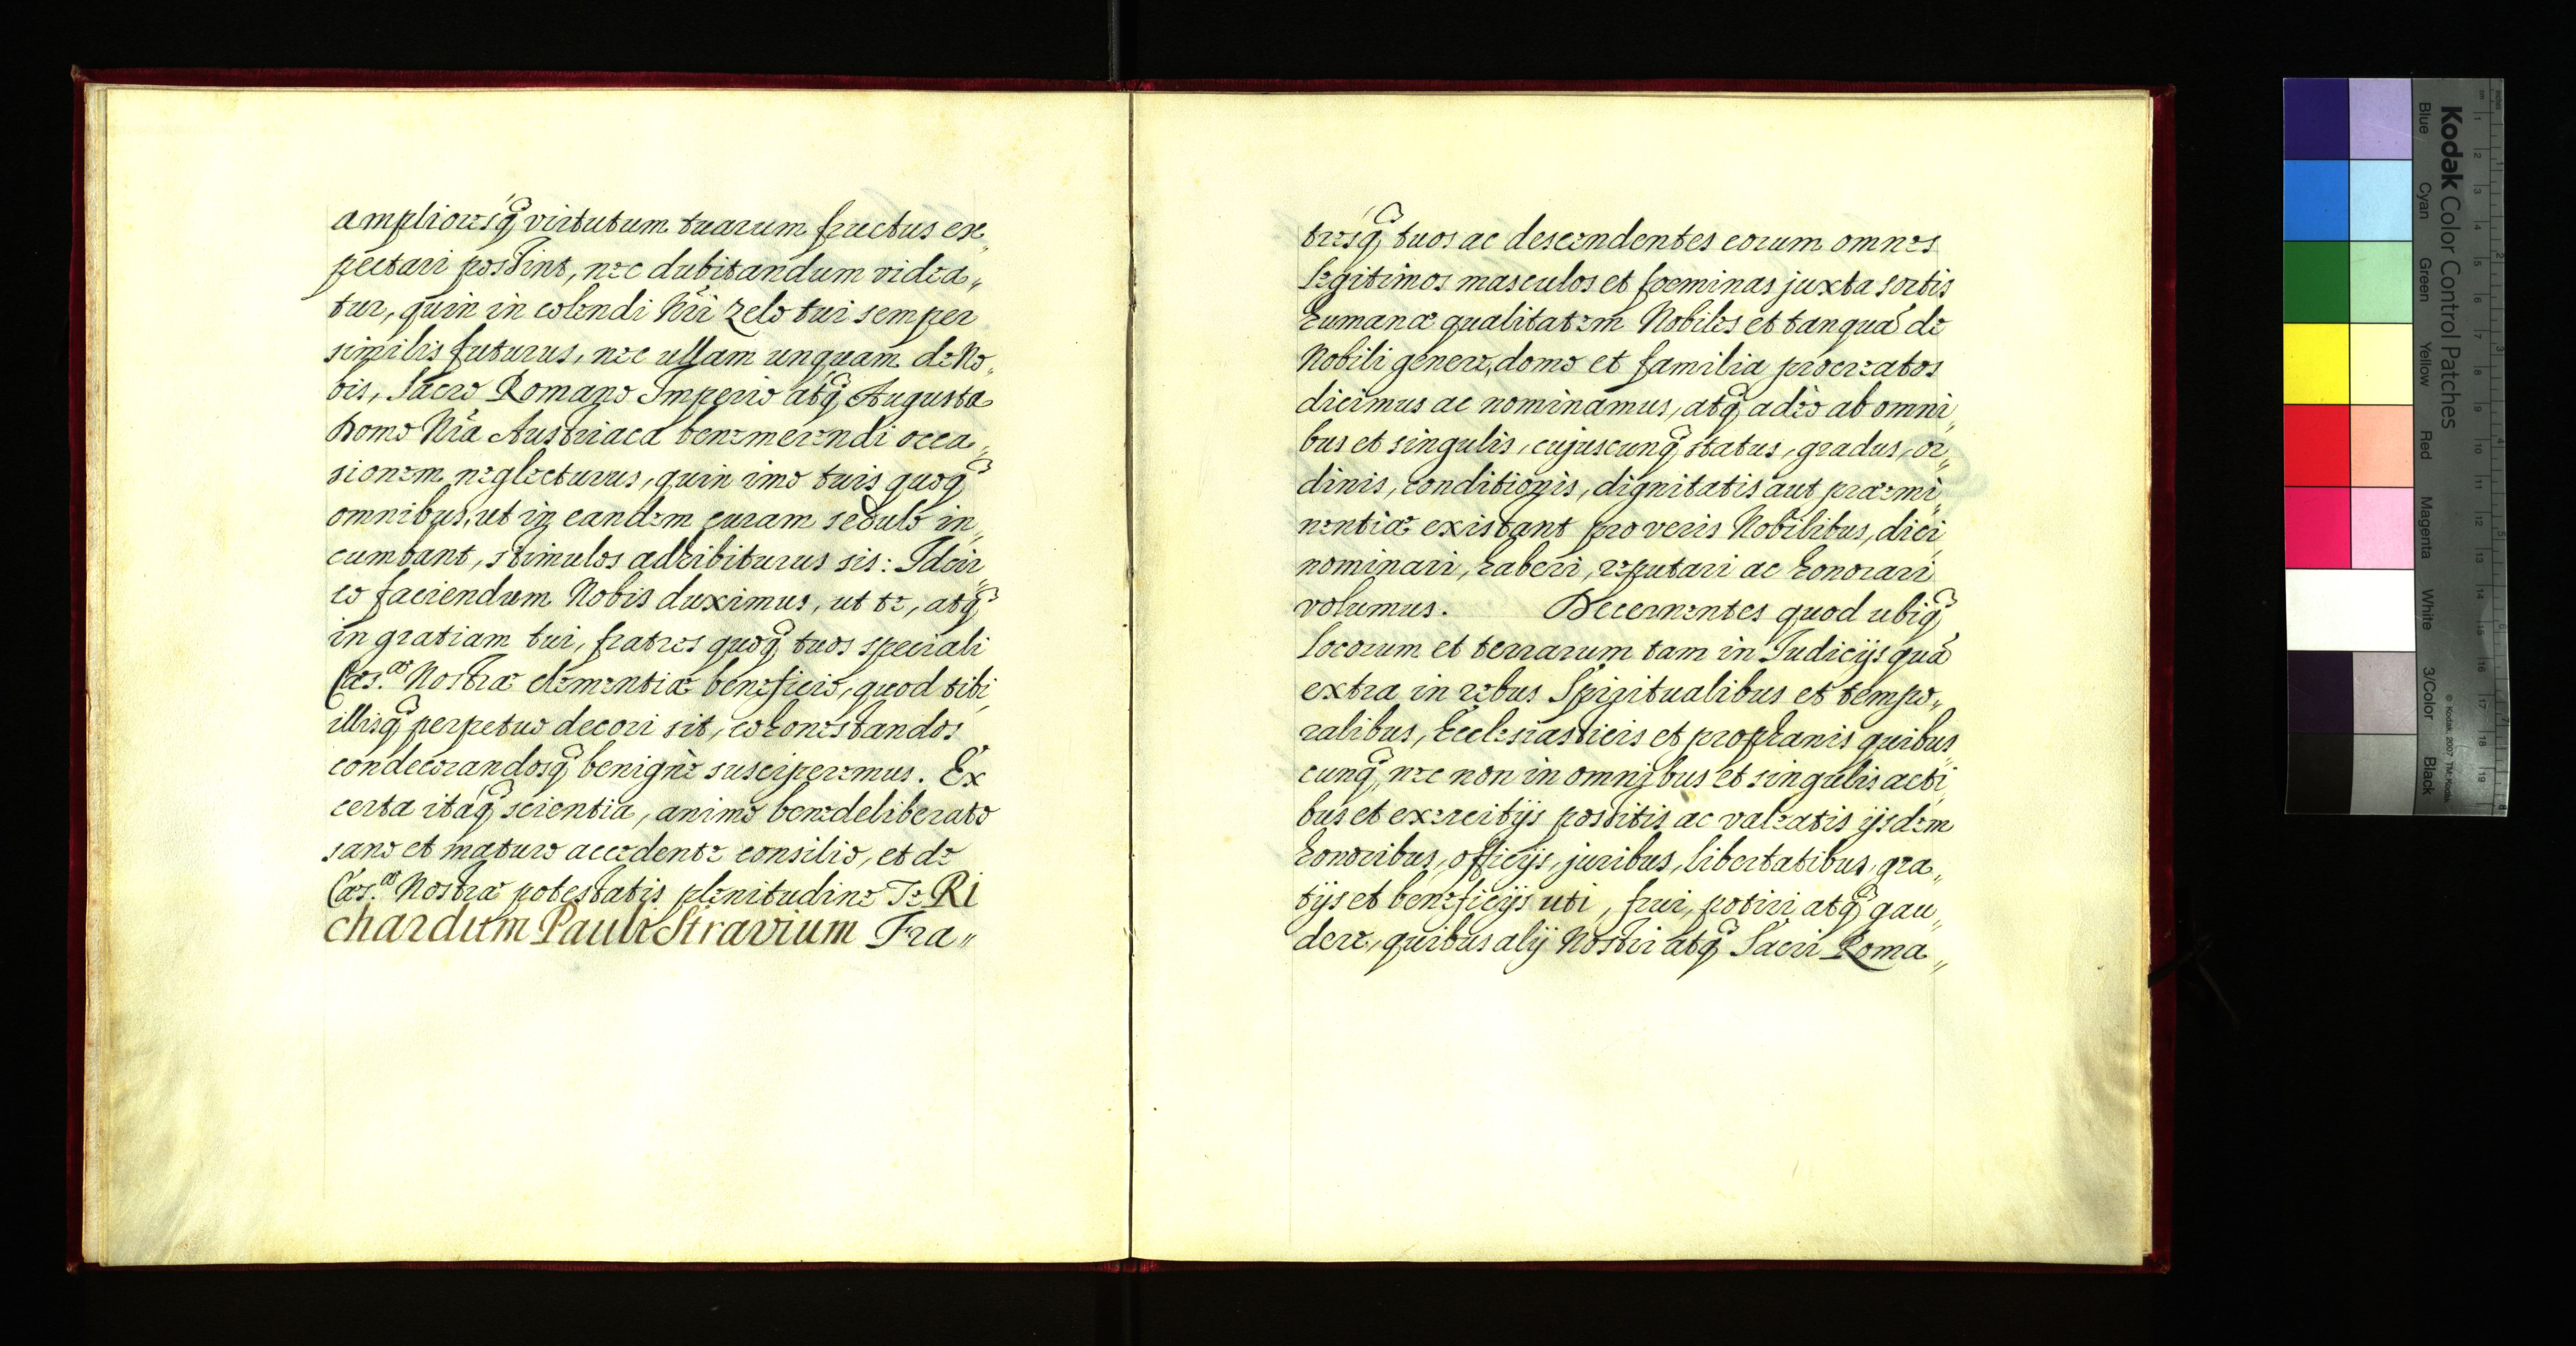 ampliorésq̃ virtutum tuarum fructus ex„
pectari possint, nec dubitandum videa„
tur, quin in colendi Nr̃i zelo tui semper
similis futurus, nec ullam unquam de No„
bis, Sacro Romano Imperio atq̃ Augusta
Domo Nr̃a Austriaca benemerendi occa„
sionem neglecturus, quin imo tuis quoq̃
omnibus, ut in eandem curam sedulo in„
cumbant, stimulos adhibiturus sis: Idcir„
co faciendum Nobis duximus, ut te, atq̃
in gratiam tui, fratres quoq̃ tuos speciali
Cæs.æ Nostræ clementiæ beneficio, quod tibi
illisq̃ perpetuo decori sit, cohonestandos
condecorandosq̃ benignè susciperemus. Ex
certa itaq̃ scientia, animo bene deliberato
sano et maturo accedente consilio, et de
Cæs.æ Nostræ potestatis plenitudine Te Ri
chardum Pauli Stravium Fra„
tresq̃ tuos ac descendentes eorum omnes
legitimos masculos et foeminas juxta sortis
humanæ qualitatem Nobiles et tanquã de
Nobili genere, domo et familia procreatos
dicimus ac nominamus, atq̃ adeò ab omni„
bus et singulis, cujuscunq̃ status, gradus, or„
dinis, conditionis, dignitatis aut præemi„
nentiæ existant pro veris Nobilibus, dici,
nominari, haberi, reputari ac honorari
volumus. Decernentes quod ubiq̃
locorum et terrarum tam in Judicijs quã
extra in rebus Spiritualibus et tempo„
ralibus, Ecclesiasticis et prophanis quibus„
cunq̃, nec non in omnibus et singulis acti„
bus et exercitijs possitis ac valeatis ijsdem
honoribus, officijs, juribus, libertatibus, gra„
tijs et beneficijs uti, frui, potiri atq̃ gau„
dere, quibus alij Nostri atq̃ Sacri Roma„
Kodak Color Control Patches
Blue Cyan Green Yellow Red Magenta White 3/Color Black
© Kodak, 2007 TM: Kodak